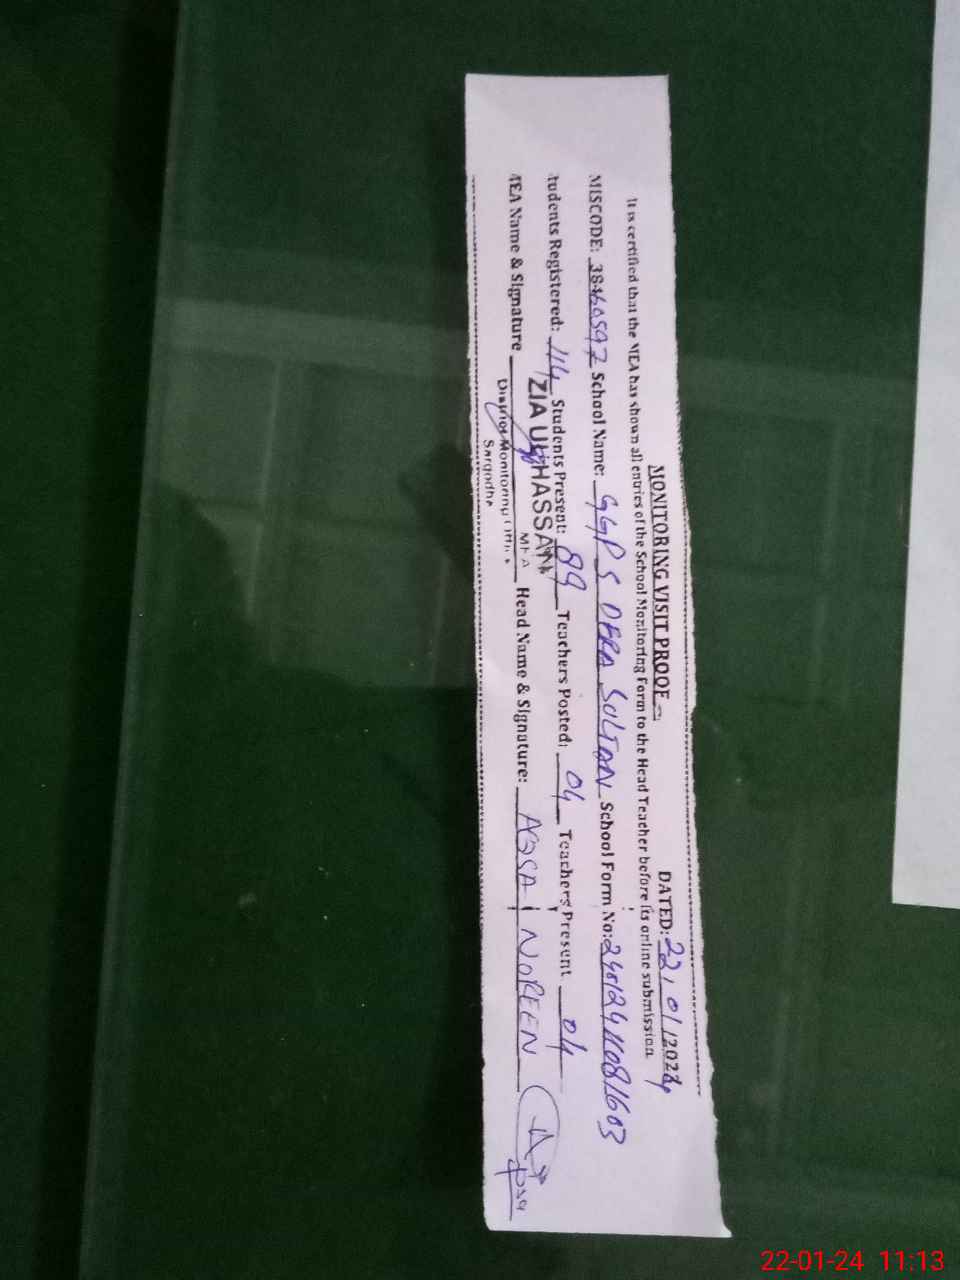 MONITORING VISIT PROOF
DATED: 22/01/2024
It is certified that the MEA has shown all entries of the School Monitoring Form to the Head Teacher before its online submission
MISCODE: 38460597 School Name: GGPS DERA SULTAN School Form No:
tudents Registered: 114 Students Present: 89 Teachers Posted: 04 Teachers Present 04
MEA Name & Signature Head Name & Signature: AQSA NOREEN
ZIA UL HASSAN
MEA
District Monitoring Office
Sargodha
22-01-24 11:13